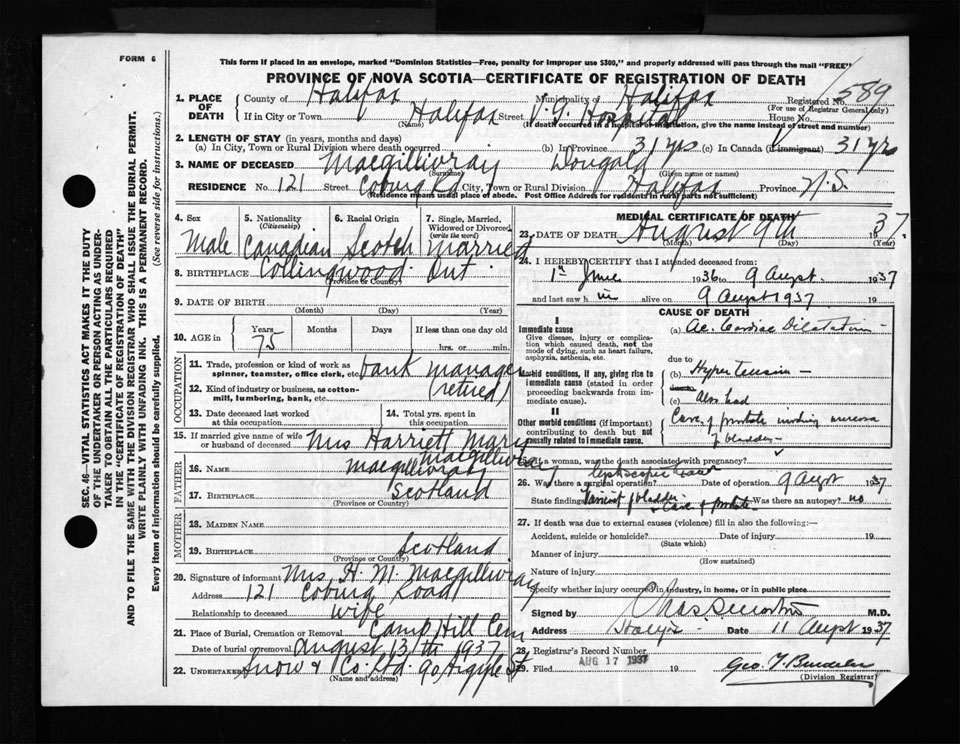 FORM 6
This form if placed in an envelope, marked "Dominion Statistics—Free, penalty for improper use $300," and properly addressed will pass through the mail "FREE"
PROVINCE OF NOVA SCOTIA—CERTIFICATE OF REGISTRATION OF DEATH
1. PLACE OF DEATH
County of Halifax Municipality of Halifax Registered No. 589
(For use of Registrar General only)
If in City or Town Halifax Street V. G. Hospital House No.
(Name) (If death occurred in a hospital or institution, give the name instead of street and number)
2. LENGTH OF STAY (in years, months and days)
(a) In City, Town or Rural Division where death occurred (b) In Province 31 yrs (c) In Canada (if immigrant) 31 yrs
3. NAME OF DECEASED Macgillivray Dougald
(Surname) (Given name or names)
RESIDENCE No. 121 Street Coburg Rd City, Town or Rural Division Halifax Province N.S.
(Residence means usual place of abode. Post Office Address for residents in rural parts not sufficient)
4. Sex Male
5. Nationality (Citizenship) Canadian
6. Racial Origin Scotch
7. Single, Married, Widowed or Divorced (write the word) Married
8. BIRTHPLACE Collingwood Ont
(Province or Country)
9. DATE OF BIRTH
(Month) (Day) (Year)
10. AGE in Years 75 Months Days If less than one day old
hrs. or min.
OCCUPATION
11. Trade, profession or kind of work as spinner, teamster, office clerk, etc. bank manager
12. Kind of industry or business, as cotton-mill, lumbering, bank, etc. (retired)
13. Date deceased last worked at this occupation
14. Total yrs. spent in this occupation
15. If married give name of wife or husband of deceased Mrs Harriett Mary Macgillivray
FATHER
16. NAME Macgillivray
17. BIRTHPLACE Scotland
(Province or Country)
MOTHER
18. MAIDEN NAME
19. BIRTHPLACE Scotland
(Province or Country)
20. Signature of informant Mrs. H. M. Macgillivray
Address 121 Coburg Road
Relationship to deceased wife
21. Place of Burial, Cremation or Removal Camp Hill Cem
Date of burial or removal August 13th 1937
22. UNDERTAKER Snow & Co. Ltd. 90 Argyle St
(Name and address)
MEDICAL CERTIFICATE OF DEATH
23. DATE OF DEATH August 9th 1937.
(Month) (Day) (Year)
24. I HEREBY CERTIFY that I attended deceased from
1st June 1936 to 9 August. 1937
and last saw h im alive on 9 August 1937 19
CAUSE OF DEATH
I
Immediate cause
Give disease, injury or complication which caused death, not the mode of dying, such as heart failure, asphyxia, asthenia, etc.
(a) Ac. Cardiac Dilatation
due to
Morbid conditions, if any, giving rise to immediate cause (stated in order proceeding backwards from immediate cause).
(b) Hypertension
(c) Also had
II
Other morbid conditions (if important) contributing to death but not causally related to immediate cause.
Carc. of prostate involving mucosa of bladder
25. If a woman, was the death associated with pregnancy?
26. Was there a surgical operation? Date of operation 9 August 1937
State findings of bladder Carc of prostate Was there an autopsy? no
27. If death was due to external causes (violence) fill in also the following:—
Accident, suicide or homicide? Date of injury 19
(State which)
Manner of injury
(How sustained)
Nature of injury
Specify whether injury occurred in industry, in home, or in public place
Signed by M.D.
Address Date 11 August 1937
28. Registrar's Record Number
29. Filed AUG 17 1937 19
(Division Registrar)
SEC. 46—VITAL STATISTICS ACT MAKES IT THE DUTY
OF THE UNDERTAKER OR PERSON ACTING AS UNDERTAKER TO OBTAIN ALL THE PARTICULARS REQUIRED
IN THE "CERTIFICATE OF REGISTRATION OF DEATH"
AND TO FILE THE SAME WITH THE DIVISION REGISTRAR WHO SHALL ISSUE THE BURIAL PERMIT.
WRITE PLAINLY WITH UNFADING INK. THIS IS A PERMANENT RECORD.
Every item of information should be carefully supplied. (See reverse side for instructions.)